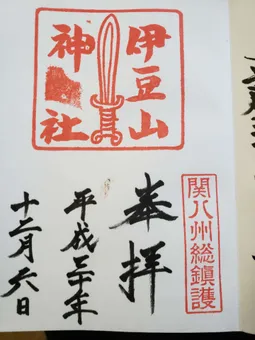 伊豆山
神社
関八州総鎮護
奉拝
平成三十年
十二月六日